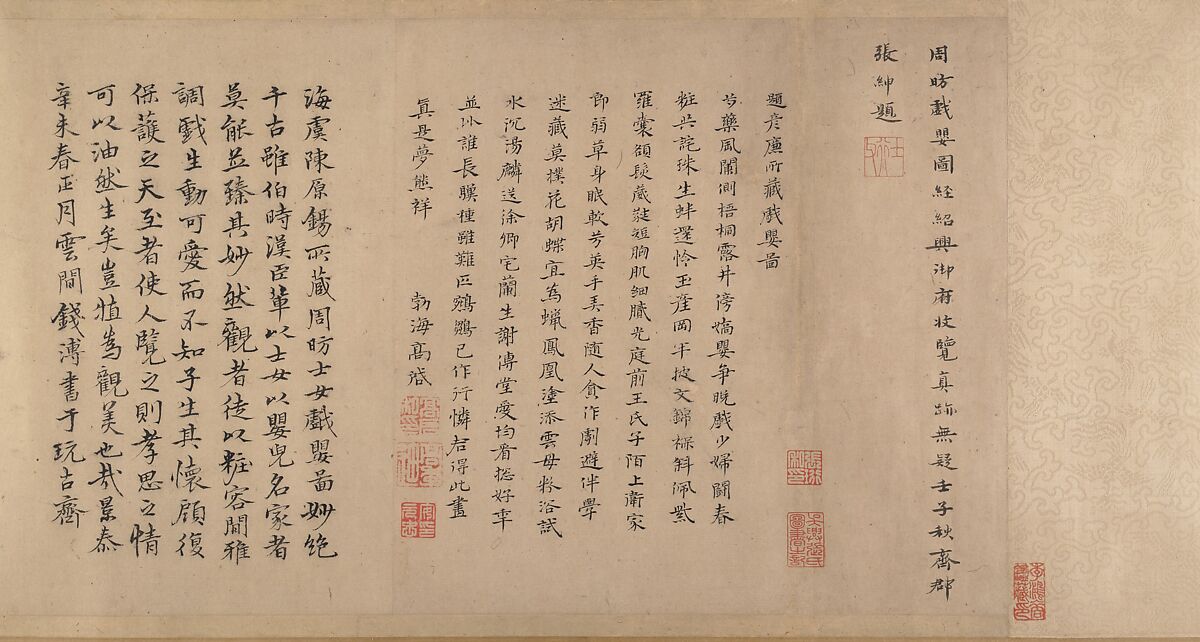 周昉戲嬰圖経紹興御府收覽真跡無疑壬子秋齋郡
張紳題
題彦廉所藏戲嬰圖
芍藥風闌側梧桐露井傍嬌嬰争晚戲少婦鬪春
粧共詫珠生蚌還怜玉産岡半披文錦褓斜佩紫
羅囊額髮葳蕤短胸肌细膩光庭前王氏子陌上衛家
郎弱草身眠軟芳英手弄香随人貪作劇避伴學
迷藏莫撲花胡蝶宜為蝋鳳凰塗添雲母粉浴試
水沉湯麟送徐卿宅蘭生謝傅堂愛均看揔好
並誰長驥種雖難匹鵷鶵已作行憐君得此畫
真是夢熊祥
勃海髙啓
海虞陳原錫所藏周昉士女戲嬰圖妙絶
千古雖伯時漢臣軰以士女以嬰兒名家者
莫能並臻其妙然觀者徒以粧容閒雅
調戲生動可愛而不知子生其懷顧復
保護之天至者使人覽之則孝思之情
可以油然生矣豈特為觀美也哉景泰
辛未春正月雲間錢溥書于玩古齋